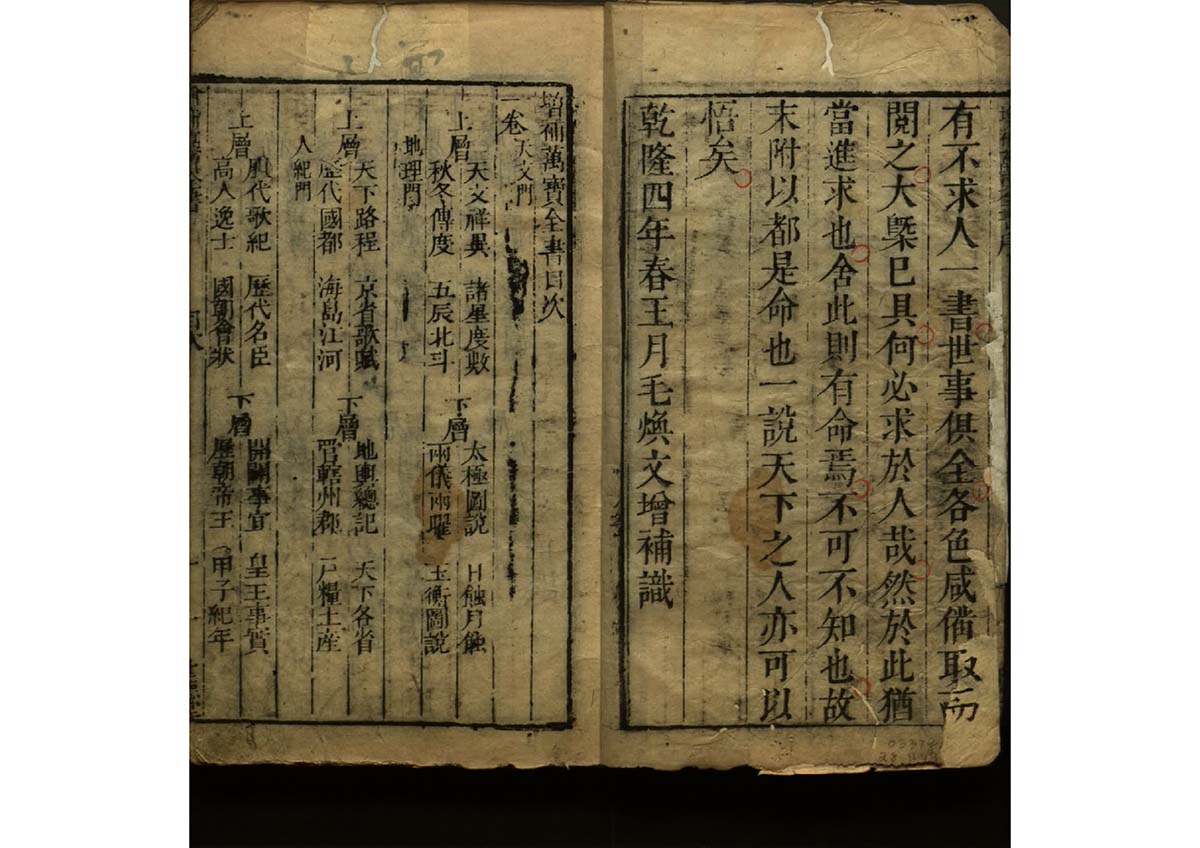 有不求人一書世事俱全各色咸備取而
閱之大槩已具何必求於人哉然於此猶
當進求也舍此則有命焉不可不知也故
末附以都是命也一說天下之人亦可以
悟矣
乾隆四年春王月毛煥文增補識
增補萬寶全書目次
一卷 天文門
上層 天文祥異 諸星度數 下層 太極圖說 日蝕月蝕
秋冬傳度 五辰北斗 兩儀兩曜 玉衡圖說
地理門
上層 天下路程 京省歌賦 下層 地輿總記 天下各省
歷代國都 海島江河 管轄州郡 戶糧土産
人紀門
上層 歷代歌紀 歷代名臣 下層 開闢事宜 皇王事實
高人逸士 國朝會狀 歷朝帝王 甲子紀年